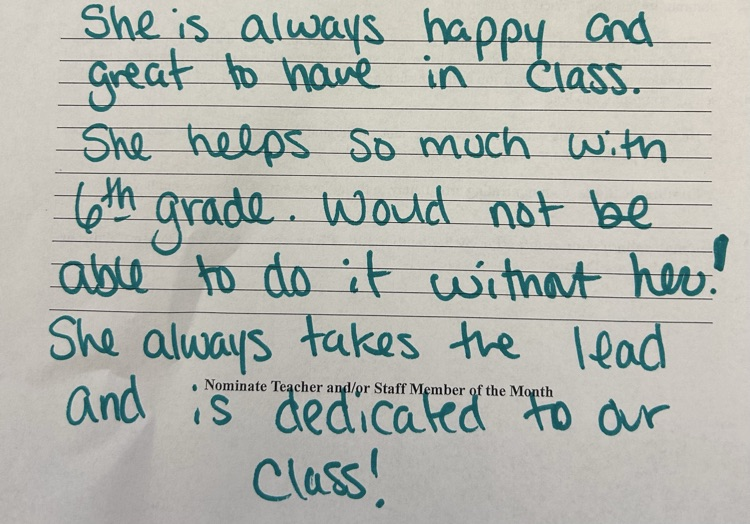 She is always happy and
great to have in class.
She helps so much with
6th grade. Would not be
able to do it without her!
She always takes the lead
Nominate Teacher and/or Staff Member of the Month
and is dedicated to our
class!